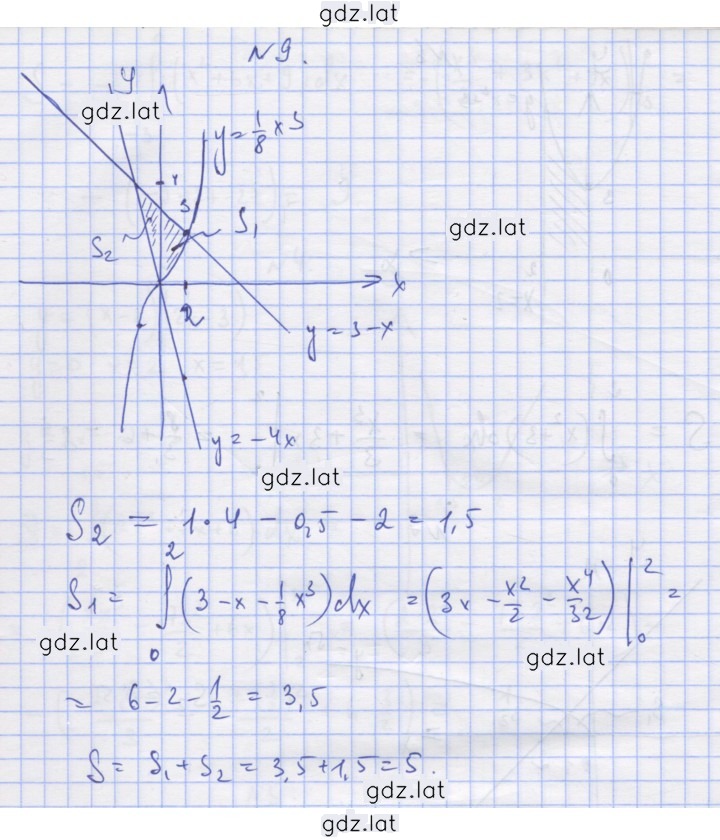 gdz.lat
N9.
y
gdz.lat
y = 1/8 x³
4
3
S₁
gdz.lat
S₂
x
2
y = 3-x
y = -4x
gdz.lat
S₂ = 1·4 - 0,5 - 2 = 1,5
S₁ = ∫₀² (3 - x - 1/8 x³) dx = (3x - x²/2 - x⁴/32) |₀² =
gdz.lat
gdz.lat
= 6 - 2 - 1/2 = 3,5
S = S₁ + S₂ = 3,5 + 1,5 = 5.
gdz.lat
gdz.lat